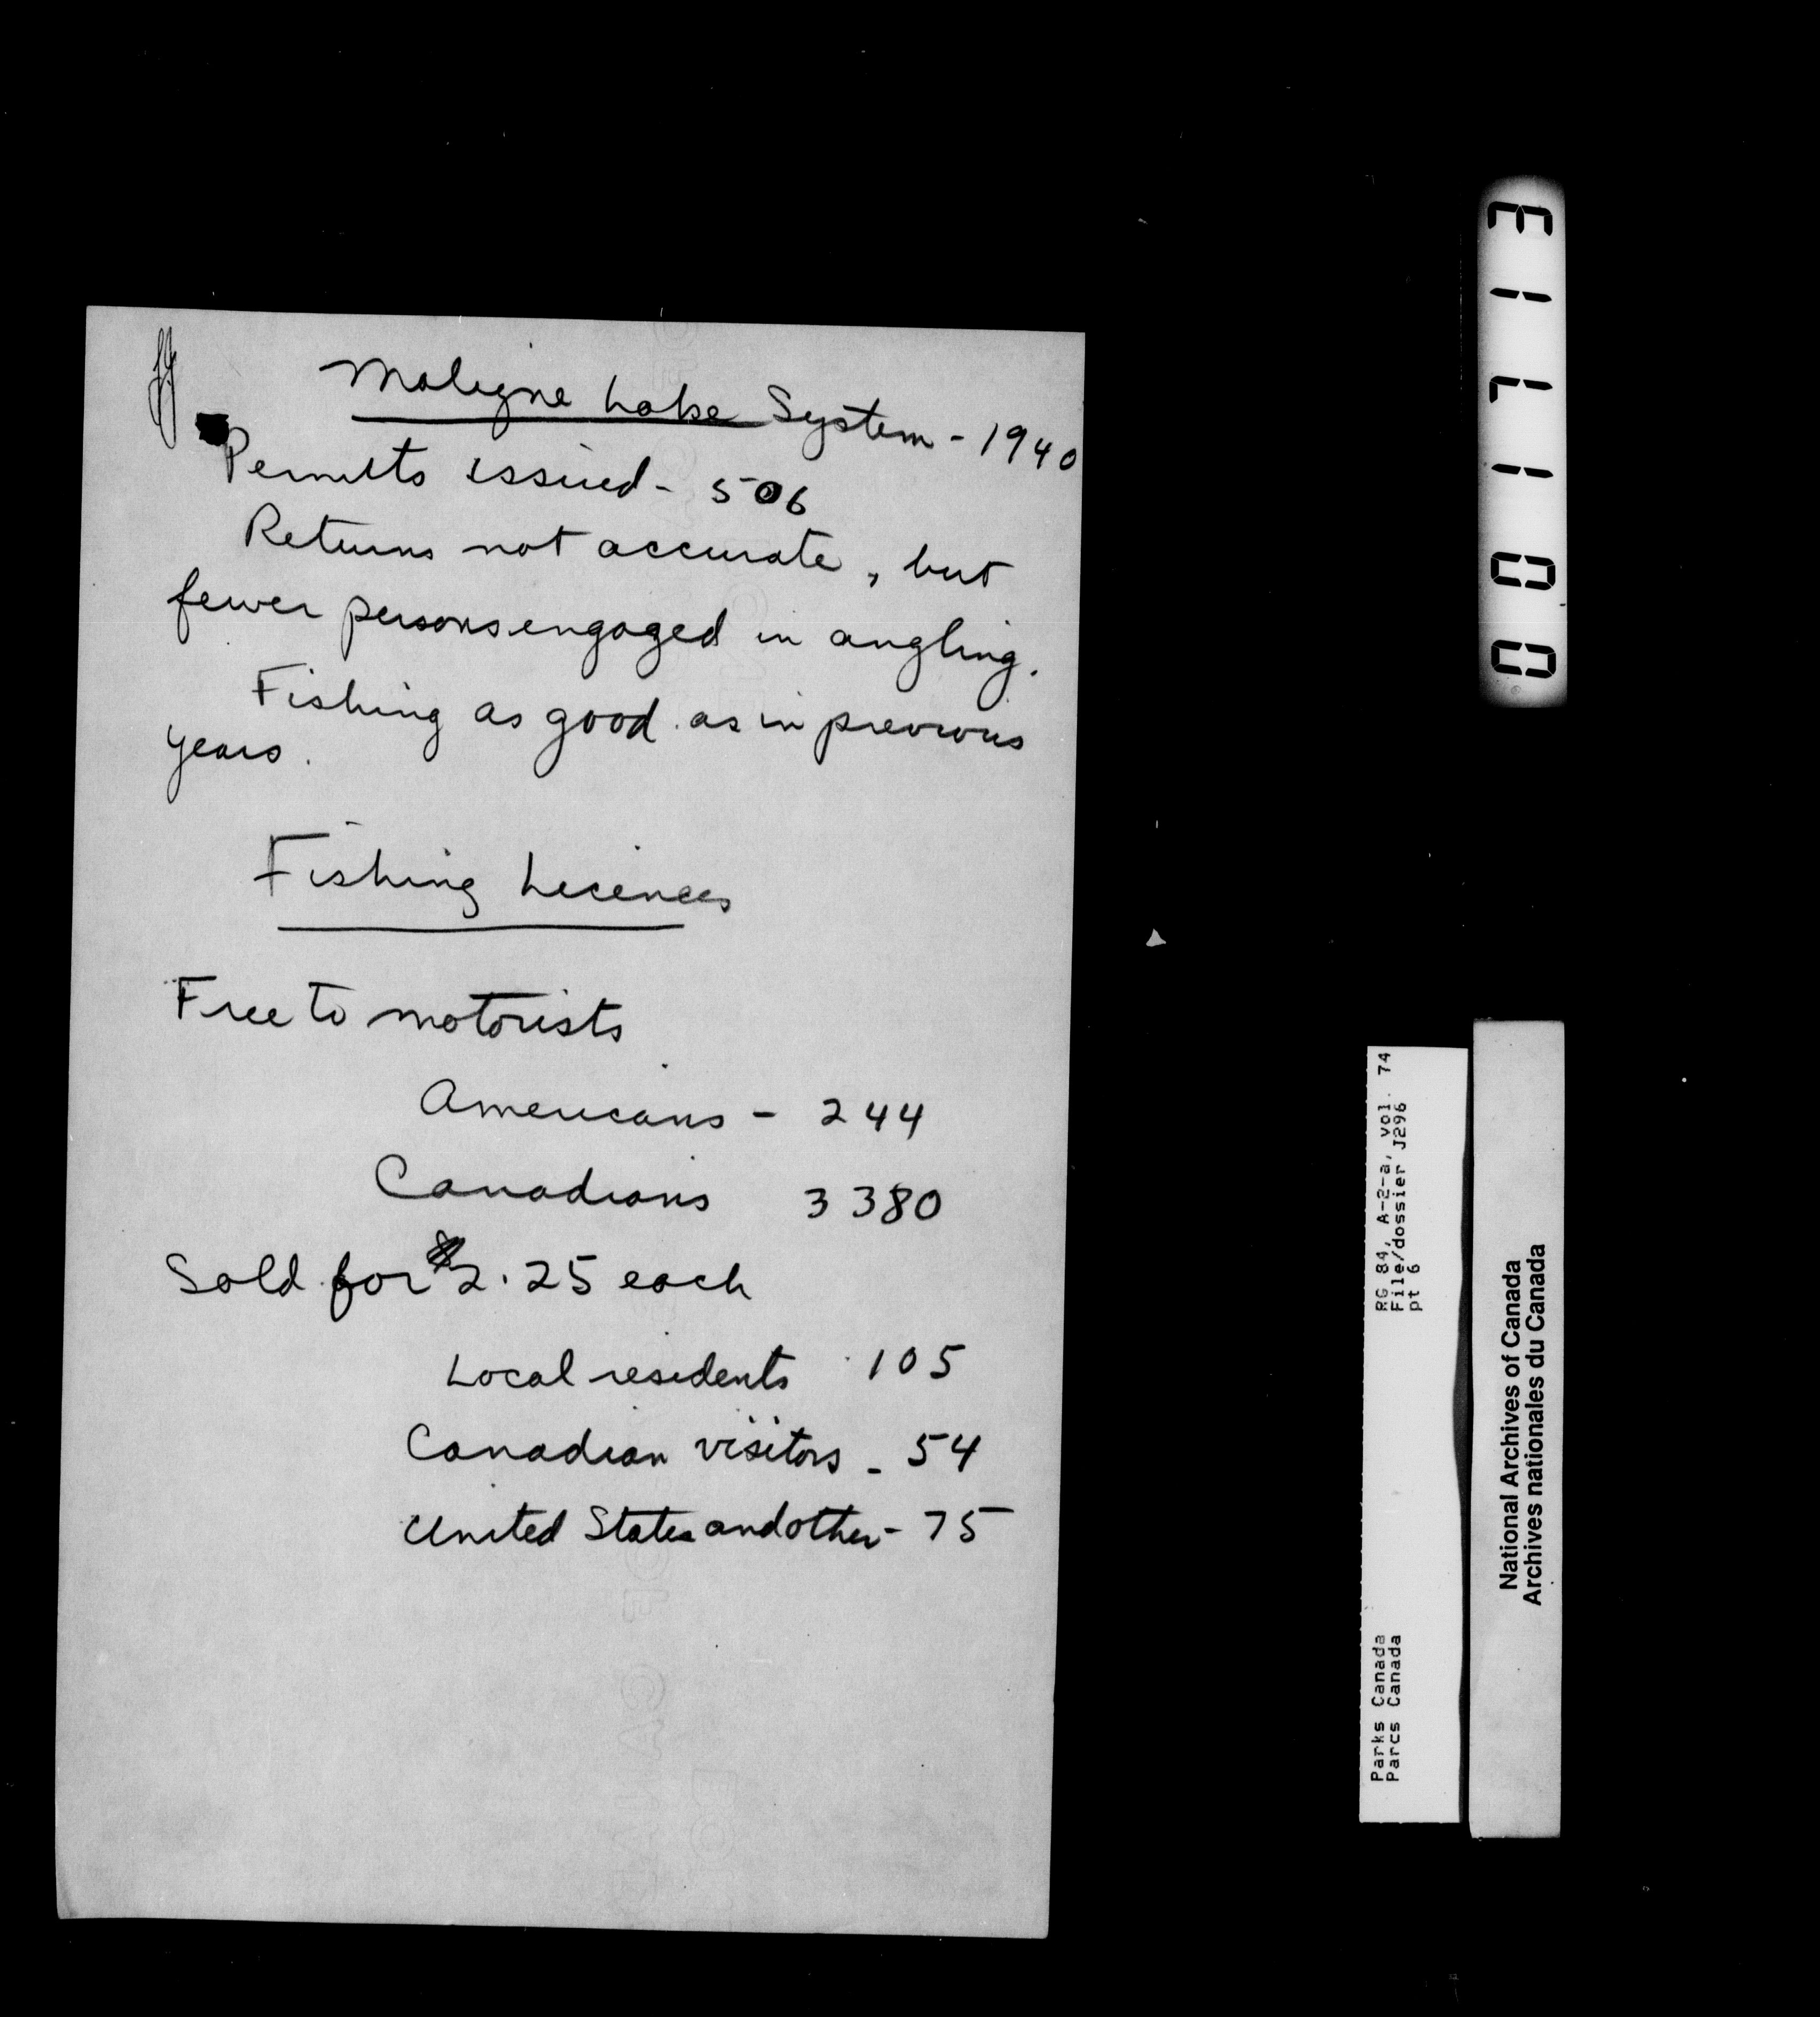 Maligne Lake System - 1940
Permits issued - 506
Returns not accurate, but
fewer persons engaged in angling.
Fishing as good as in previous
years.
Fishing Licences
Free to motorists
Americans - 244
Canadians 3380
Sold for $2.25 each
Local residents 105
Canadian visitors - 54
United States and other - 75
001713
RG 84, A-2-a, vol. 74
File/dossier J296
pt 6
Parks Canada
Parcs Canada
National Archives of Canada
Archives nationales du Canada